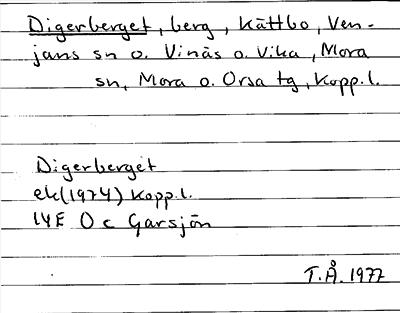 Digerberget, berg, Kättbo, Ven-
jans sn o. Vinäs o. Vika, Mora
sn, Mora o. Orsa tg, Kopp.l.
Digerberget
ek(1974) Kopp.l.
14E 0c Garsjön
T.Å. 1977